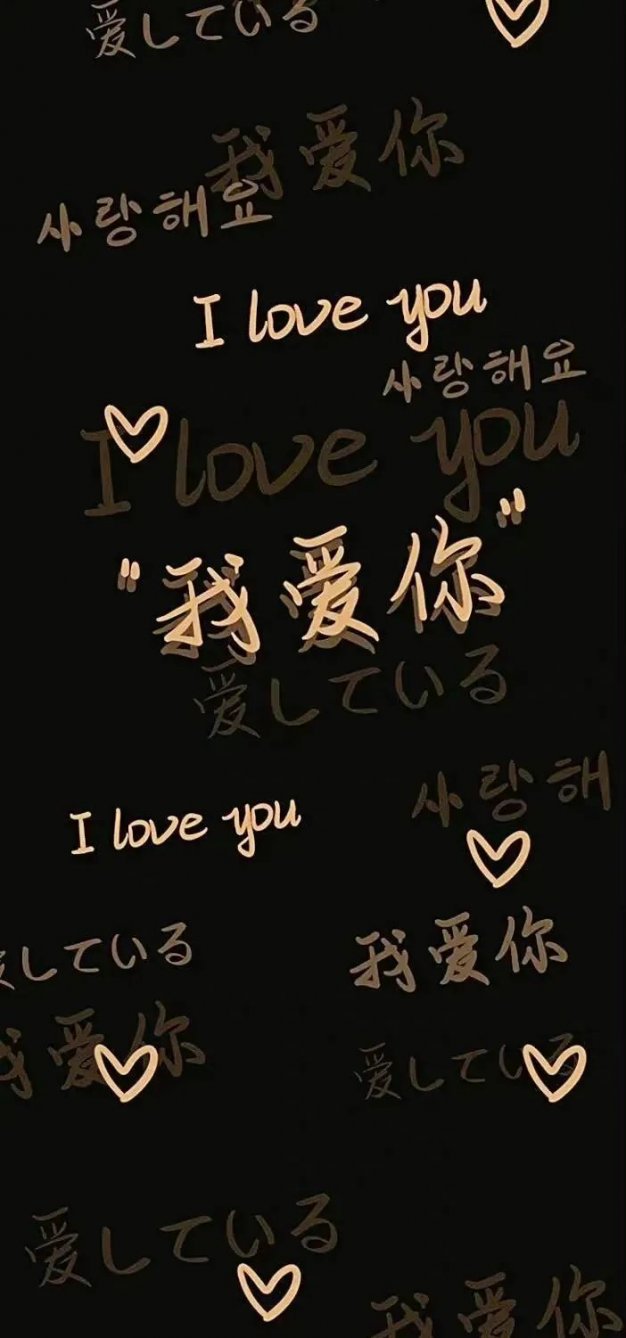 愛している
我爱你
사랑해요
I love you
사랑해요
I love you
"我爱你"
愛している
사랑해
I love you
している
我爱你
我爱你
愛している
愛している
我爱你